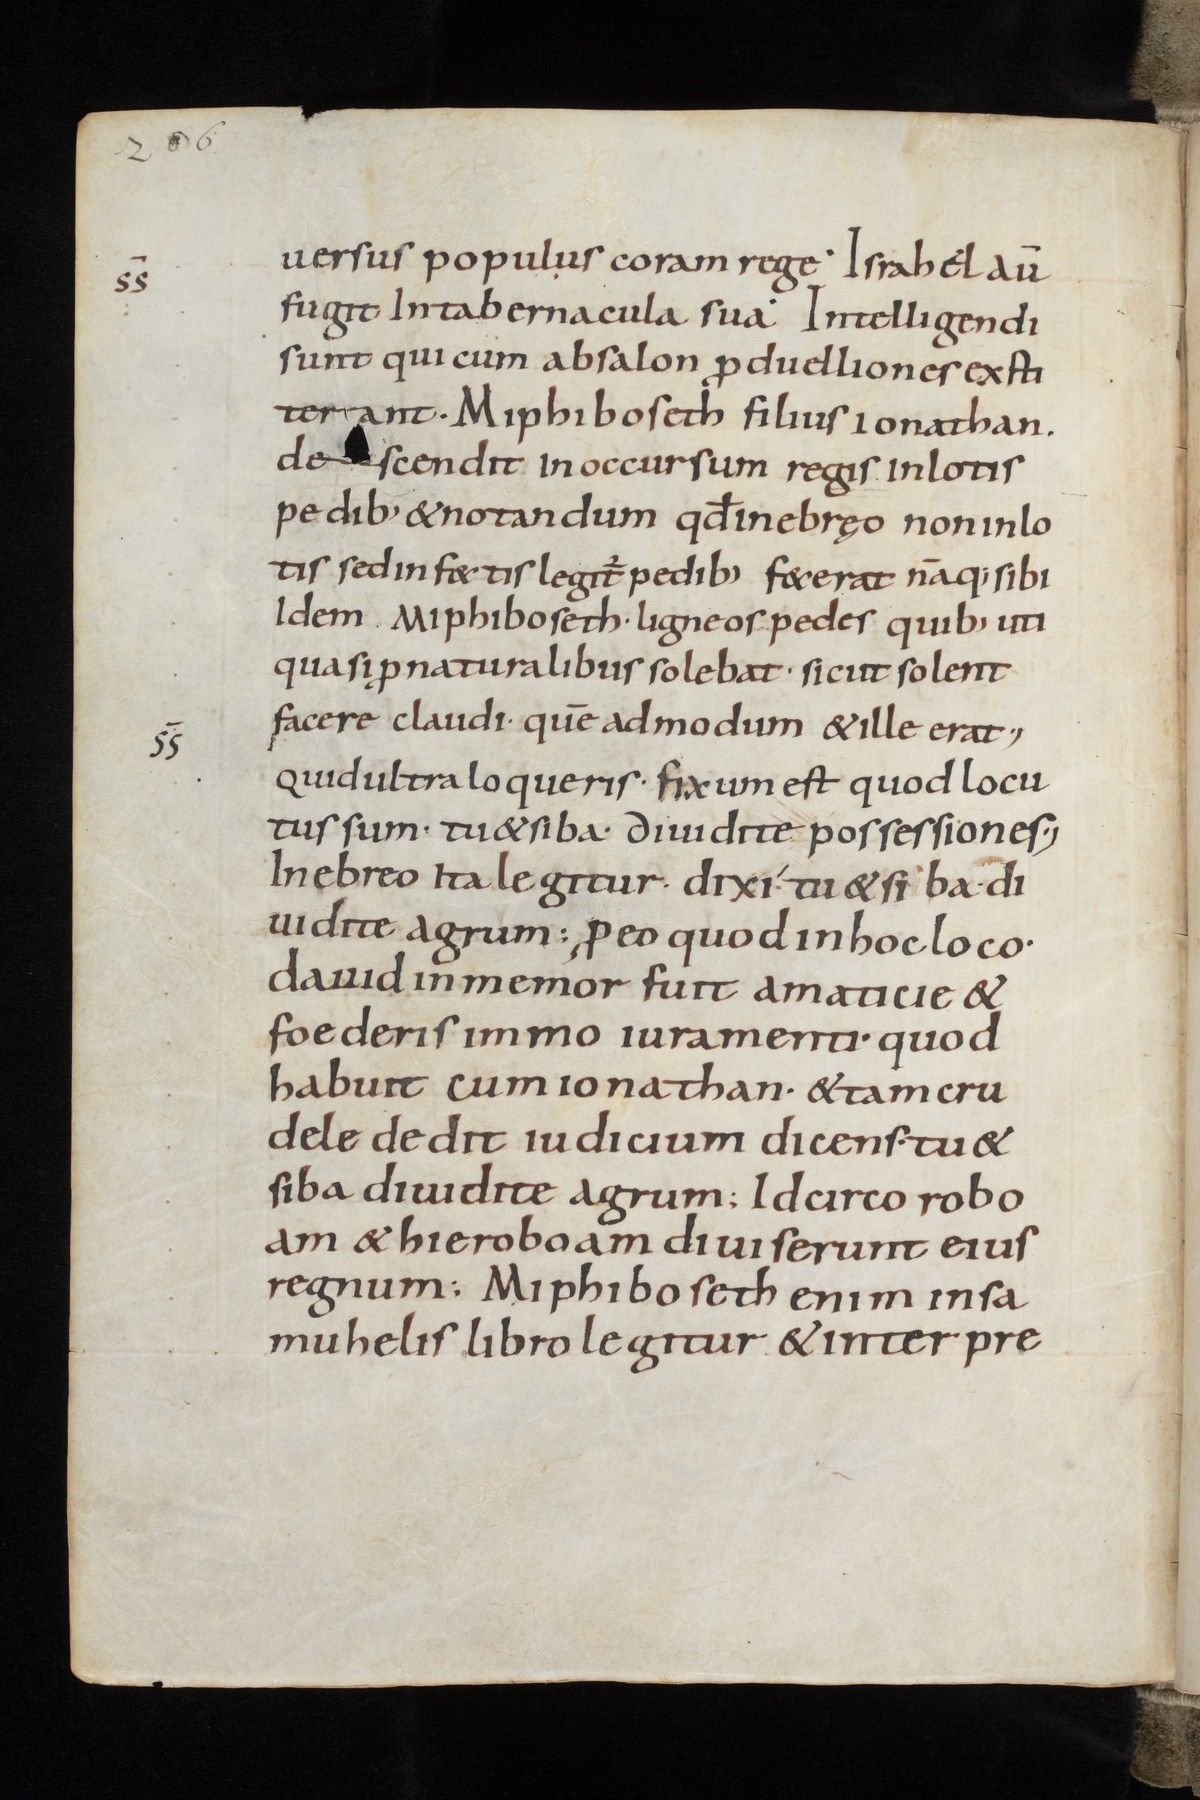 206
s̄s
uersus populus coram rege· Israhel aū
fugit Intabernacula sua· Intelligendi
sunt qui cum absalon ꝑduelliones exsti
terant. Miphiboseth filius ionathan.
descendit in occursum regis inlotis
pedib; & notandum qđ in ebręo non inlo
tis sed in f&tis legit̄ pedib; f&erat nāq; sibi
Idem Miphiboseth· ligneos pedes quib; uti
quasi ꝑ naturalibus solebat· sicut solent
facere claudi· quē admodum & ille erat;
s̄s
Quid ultra loqueris· fixum est quod locu
tus sum· tu & siba· diuidite possessiones;
In ebreo Ita legitur· dixi· tu & siba· di
uidite agrum; ꝓ eo quod in hoc loco·
dauid inmemor fuit amaticie &
foederis immo iuramenti· quod
habuit cum ionathan· & tam cru
dele dedit iudicium dicens· tu &
siba diuidite agrum; Idcirco robo
am & hieroboam diuiserunt eius
regnum; Miphiboseth enim in sa
muhelis libro legitur & interpre